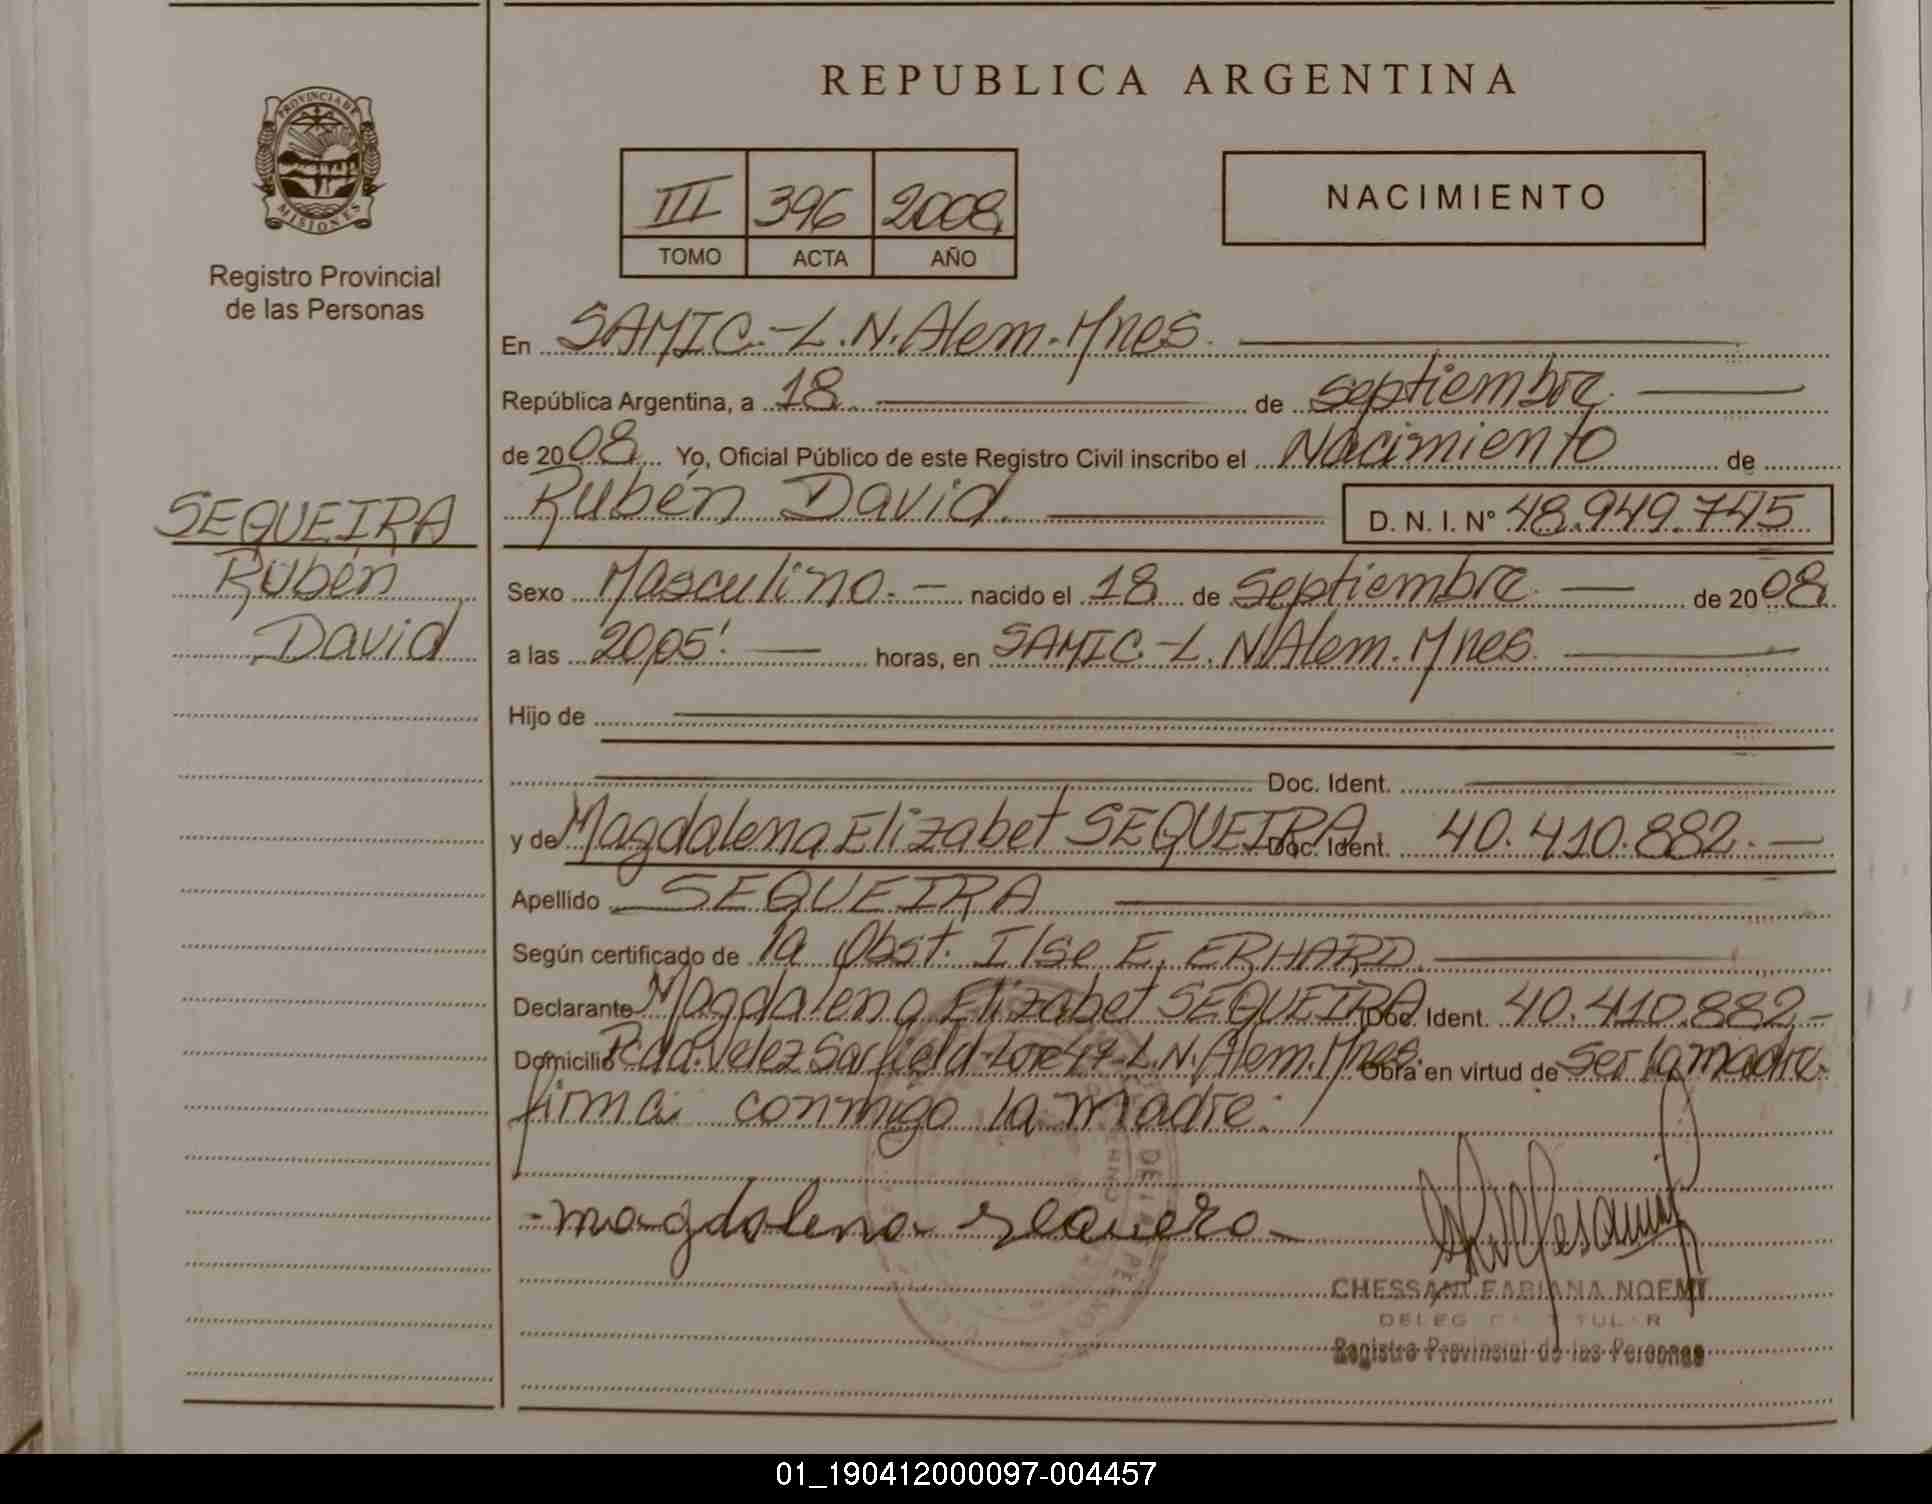 REPUBLICA ARGENTINA
PROVINCIA DE
MISIONES
Registro Provincial
de las Personas
III 396 2008
TOMO ACTA AÑO
NACIMIENTO
En SAMIC.-L.N.Alem.Mnes.
República Argentina, a 18 de septiembre.
de 2008 Yo, Oficial Público de este Registro Civil inscribo el Nacimiento de
Rubén David. D. N. I. Nº 48.949.745
SEQUEIRA
Rubén
David
Sexo Masculino.- nacido el 18 de septiembre. de 2008
a las 20,05' horas, en SAMIC.-L.N.Alem.Mnes.
Hijo de
Doc. Ident.
y de Magdalena Elizabet SEQUEIRA Doc. Ident. 40.410.882.-
Apellido SEQUEIRA
Según certificado de la Obst. Ilse E. ERHARD.
Declarante Magdalena Elizabet SEQUEIRA Doc. Ident. 40.410.882.-
Domicilio Velez Sarfield-Lote 47-L.N.Alem.Mnes. Obra en virtud de ser la madre.
firma conmigo la madre.
magdalena
CHESSANI FABIANA NOEMI
Registro Provincial de las Personas
01_190412000097-004457